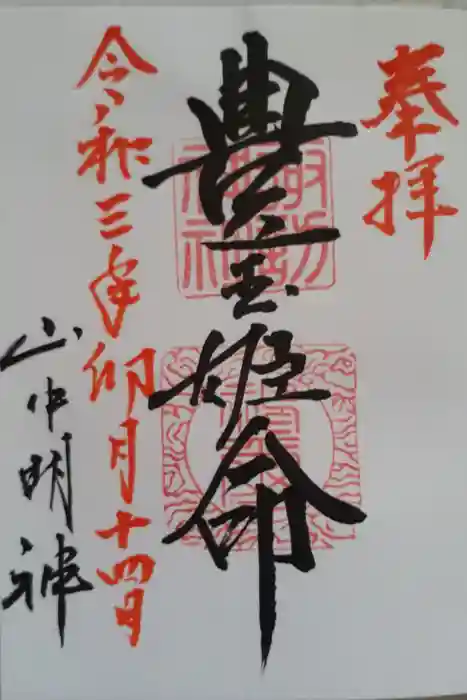 奉拝
豊玉姫命
令和三年卯月十四日
山中明神